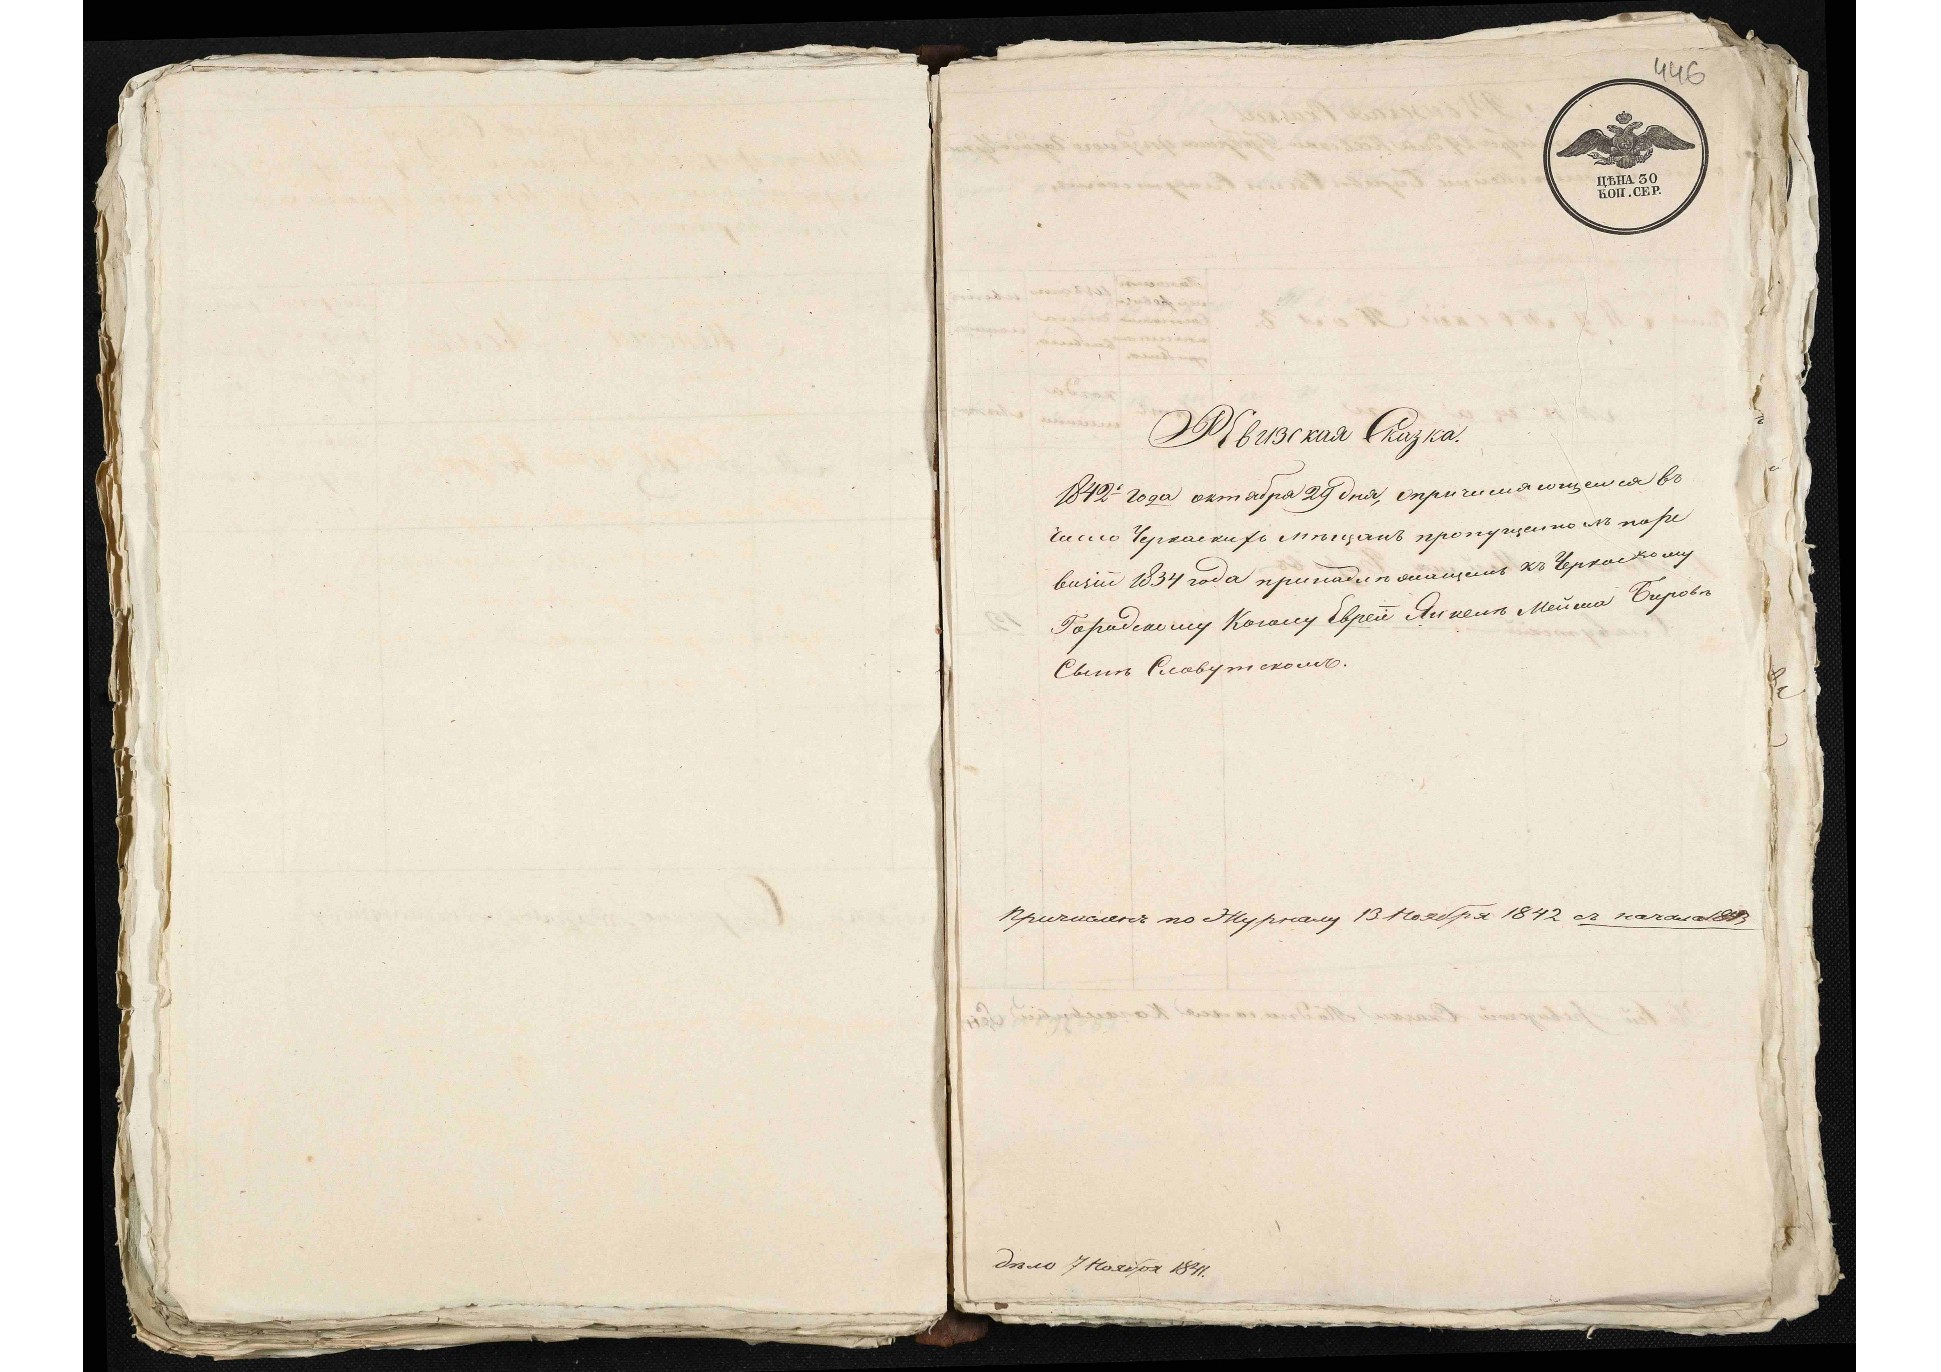 446
ЦѢНА 30
КОП. СЕР.
Ревизская Сказка.
1842 года октября 29 дня, опричисляющемся въ
число Черкаскихъ мѣщанъ пропущенномъ поре
визіи 1834 года принадлежащемъ къ Черкаскому
Городскому Кагалу Еврей Янкель Мейма Беровъ
Сынъ Славутскомъ.
Причисленъ по Журналу 13 Ноября 1842 съ начала 1843
дѣло 7 Ноября 1841.